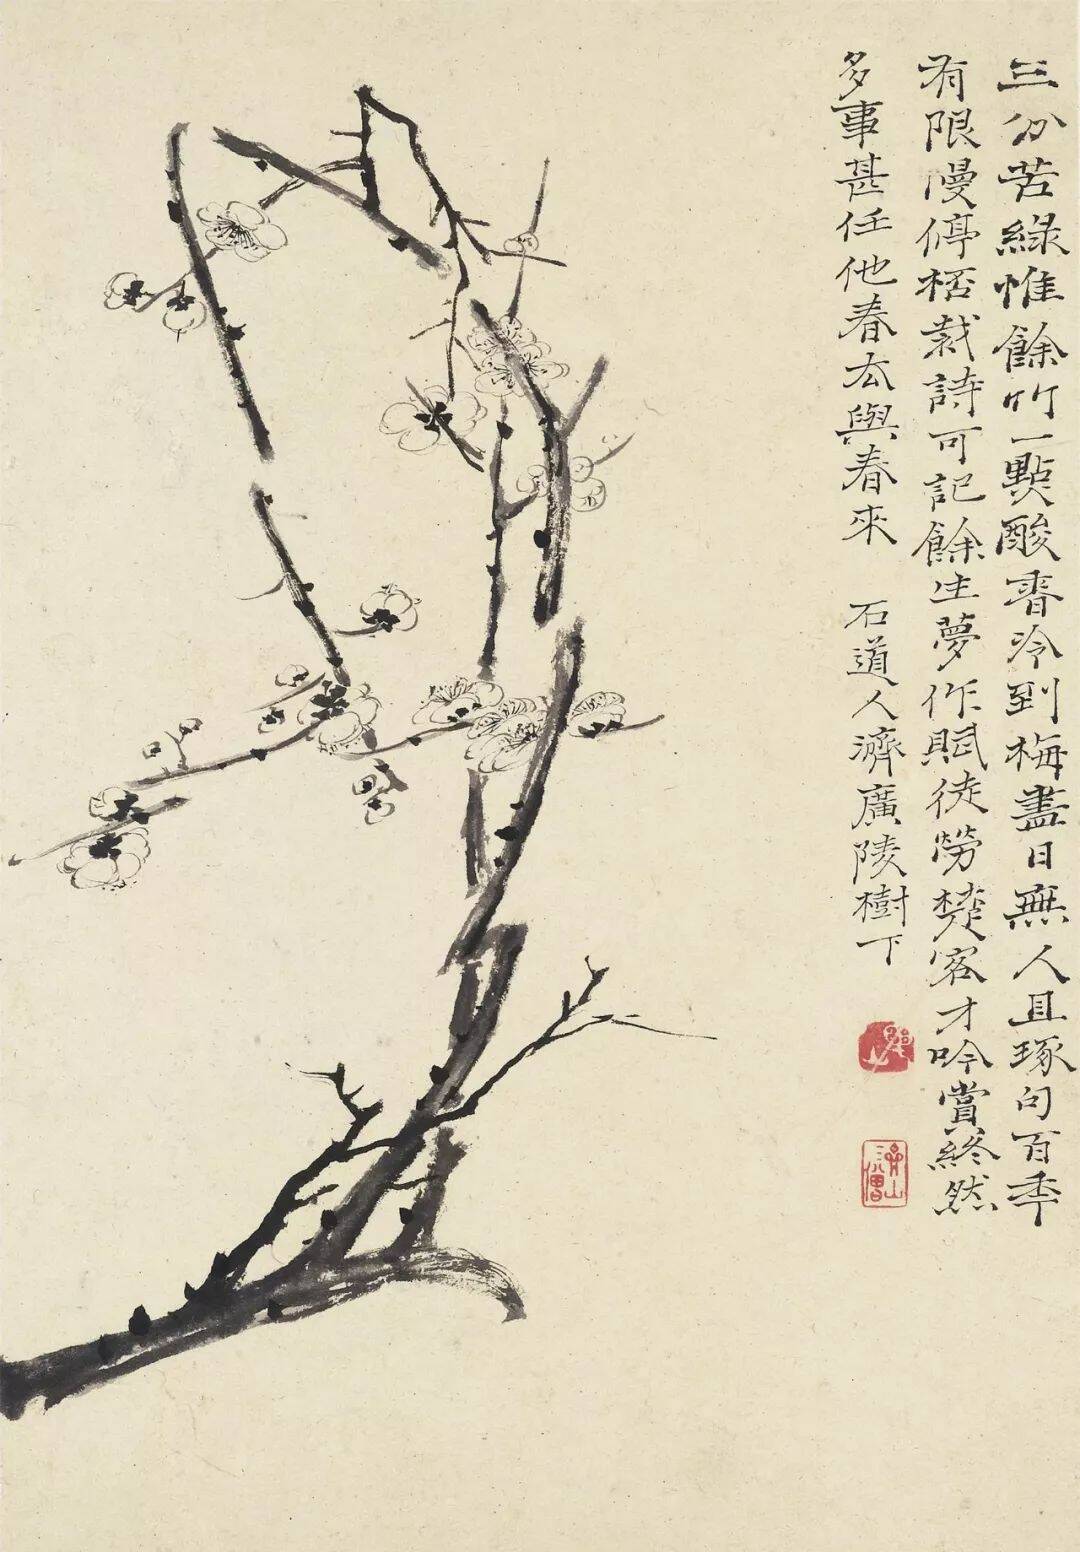 三分苦綠惟餘竹一點酸香冷到梅盡日無人且琢句百年
有限漫停桮裁詩可記餘生夢作賦徒勞楚客才吟賞終然
多事甚任他春去與春來
石道人濟廣陵樹下
清湘